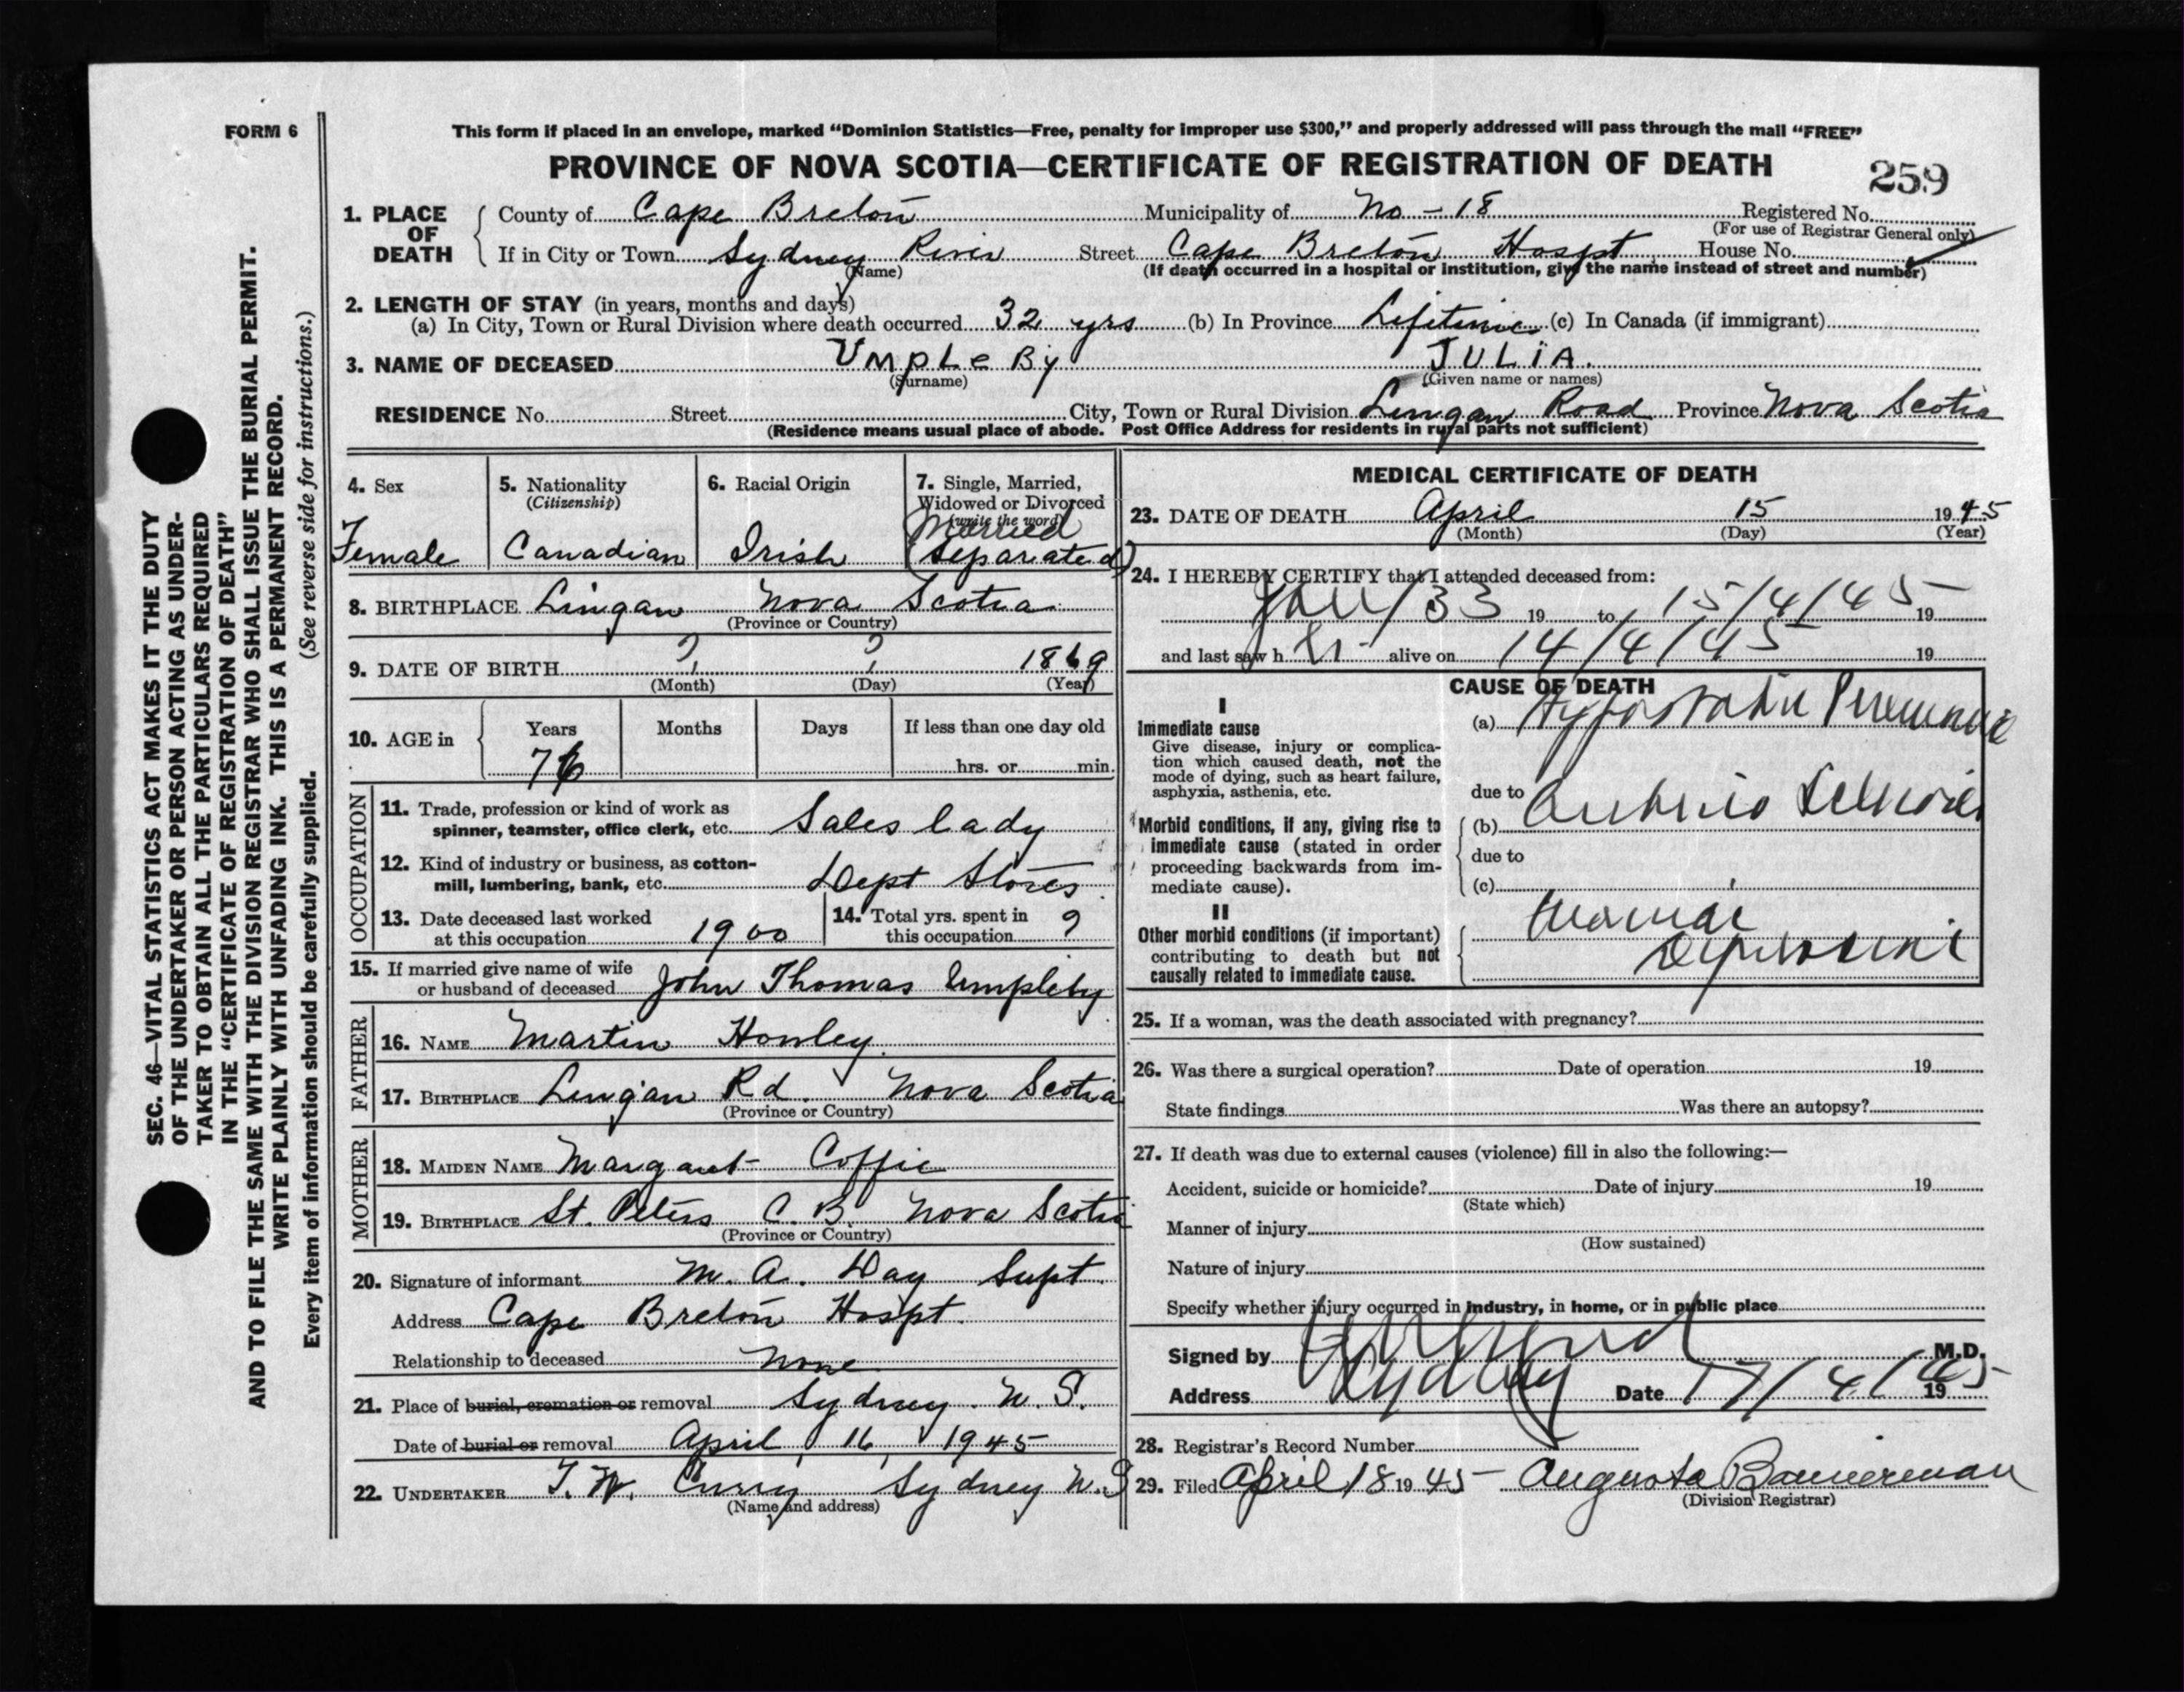 FORM 6
This form if placed in an envelope, marked “Dominion Statistics—Free, penalty for improper use $300,” and properly addressed will pass through the mail “FREE”
PROVINCE OF NOVA SCOTIA—CERTIFICATE OF REGISTRATION OF DEATH
259
1. PLACE OF DEATH
County of Cape Breton Municipality of No - 18 Registered No.
(For use of Registrar General only)
If in City or Town Sydney River Street Cape Breton Hospt House No.
(Name) (If death occurred in a hospital or institution, give the name instead of street and number)
2. LENGTH OF STAY (in years, months and days)
(a) In City, Town or Rural Division where death occurred 32 yrs (b) In Province Lifetime (c) In Canada (if immigrant)
3. NAME OF DECEASED UMPLeBy JULIA.
(Surname) (Given name or names)
RESIDENCE No. Street City, Town or Rural Division Lingan Road Province Nova Scotia
(Residence means usual place of abode. Post Office Address for residents in rural parts not sufficient)
4. Sex
Female
5. Nationality
(Citizenship)
Canadian
6. Racial Origin
Irish
7. Single, Married,
Widowed or Divorced
(write the word)
Married
(Separated)
8. BIRTHPLACE Lingan Nova Scotia
(Province or Country)
9. DATE OF BIRTH ? ? 1869
(Month) (Day) (Year)
10. AGE in
Years Months Days If less than one day old
76 hrs. or min.
OCCUPATION
11. Trade, profession or kind of work as
spinner, teamster, office clerk, etc. Sales lady
12. Kind of industry or business, as cotton-
mill, lumbering, bank, etc. Dept Stores
13. Date deceased last worked
at this occupation 1900
14. Total yrs. spent in
this occupation ?
15. If married give name of wife
or husband of deceased John Thomas Umpleby
FATHER
16. NAME Martin Honley
17. BIRTHPLACE Lingan Rd. Nova Scotia
(Province or Country)
MOTHER
18. MAIDEN NAME Margaret Coffie
19. BIRTHPLACE St. Peters C. B. Nova Scotia
(Province or Country)
20. Signature of informant M. A. Day Supt.
Address Cape Breton Hospt.
Relationship to deceased None
21. Place of burial, cremation or removal Sydney. N. S.
Date of burial or removal April 16, 1945
22. UNDERTAKER T. W. Curry Sydney N.S
(Name and address)
MEDICAL CERTIFICATE OF DEATH
23. DATE OF DEATH April 15 1945
(Month) (Day) (Year)
24. I HEREBY CERTIFY that I attended deceased from:
Jan/33 19 to 15/4/45 19
and last saw h er alive on 14/4/45 19
CAUSE OF DEATH
I
Immediate cause
Give disease, injury or complica-
tion which caused death, not the
mode of dying, such as heart failure,
asphyxia, asthenia, etc.
(a) Hypostatic Pneumonia
due to
Morbid conditions, if any, giving rise to
immediate cause (stated in order
proceeding backwards from im-
mediate cause).
(b) Arterio Sclerosis
due to
(c)
II
Other morbid conditions (if important)
contributing to death but not
causally related to immediate cause.
Depressive
25. If a woman, was the death associated with pregnancy?
26. Was there a surgical operation? Date of operation 19
State findings Was there an autopsy?
27. If death was due to external causes (violence) fill in also the following:—
Accident, suicide or homicide? Date of injury 19
(State which)
Manner of injury
(How sustained)
Nature of injury
Specify whether injury occurred in industry, in home, or in public place
Signed by M.D.
Address Sydney Date 17/4/45 19
28. Registrar's Record Number
29. Filed April 18 1945 Augusta Bannerman
(Division Registrar)
SEC. 46—VITAL STATISTICS ACT MAKES IT THE DUTY
OF THE UNDERTAKER OR PERSON ACTING AS UNDER-
TAKER TO OBTAIN ALL THE PARTICULARS REQUIRED
IN THE “CERTIFICATE OF REGISTRATION OF DEATH”
AND TO FILE THE SAME WITH THE DIVISION REGISTRAR WHO SHALL ISSUE THE BURIAL PERMIT.
WRITE PLAINLY WITH UNFADING INK. THIS IS A PERMANENT RECORD.
Every item of information should be carefully supplied. (See reverse side for instructions.)